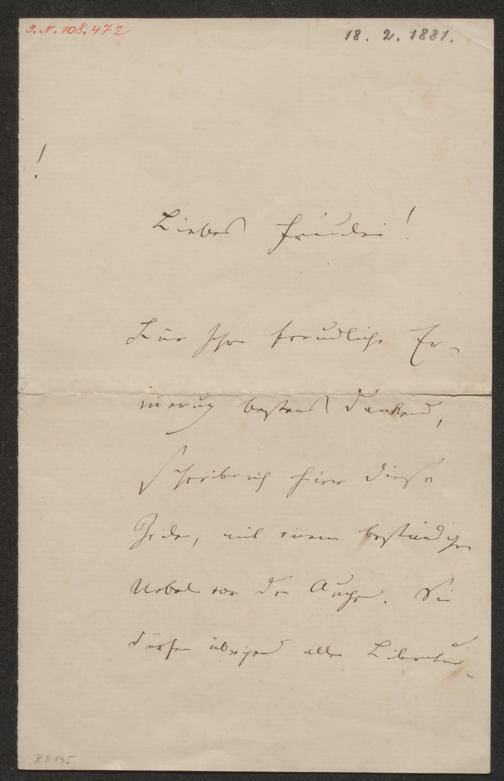 J.N. 108.472
18. 2. 1881.
!
Liebes Fräulein!
Für Ihre freundliche Er-
innerung bestens dankend,
schreibe ich hier diese
Zeilen, mit einem beständigen
Nebel vor den Augen. Sie
dürfen übrigens alle Literatur-
R.E 195